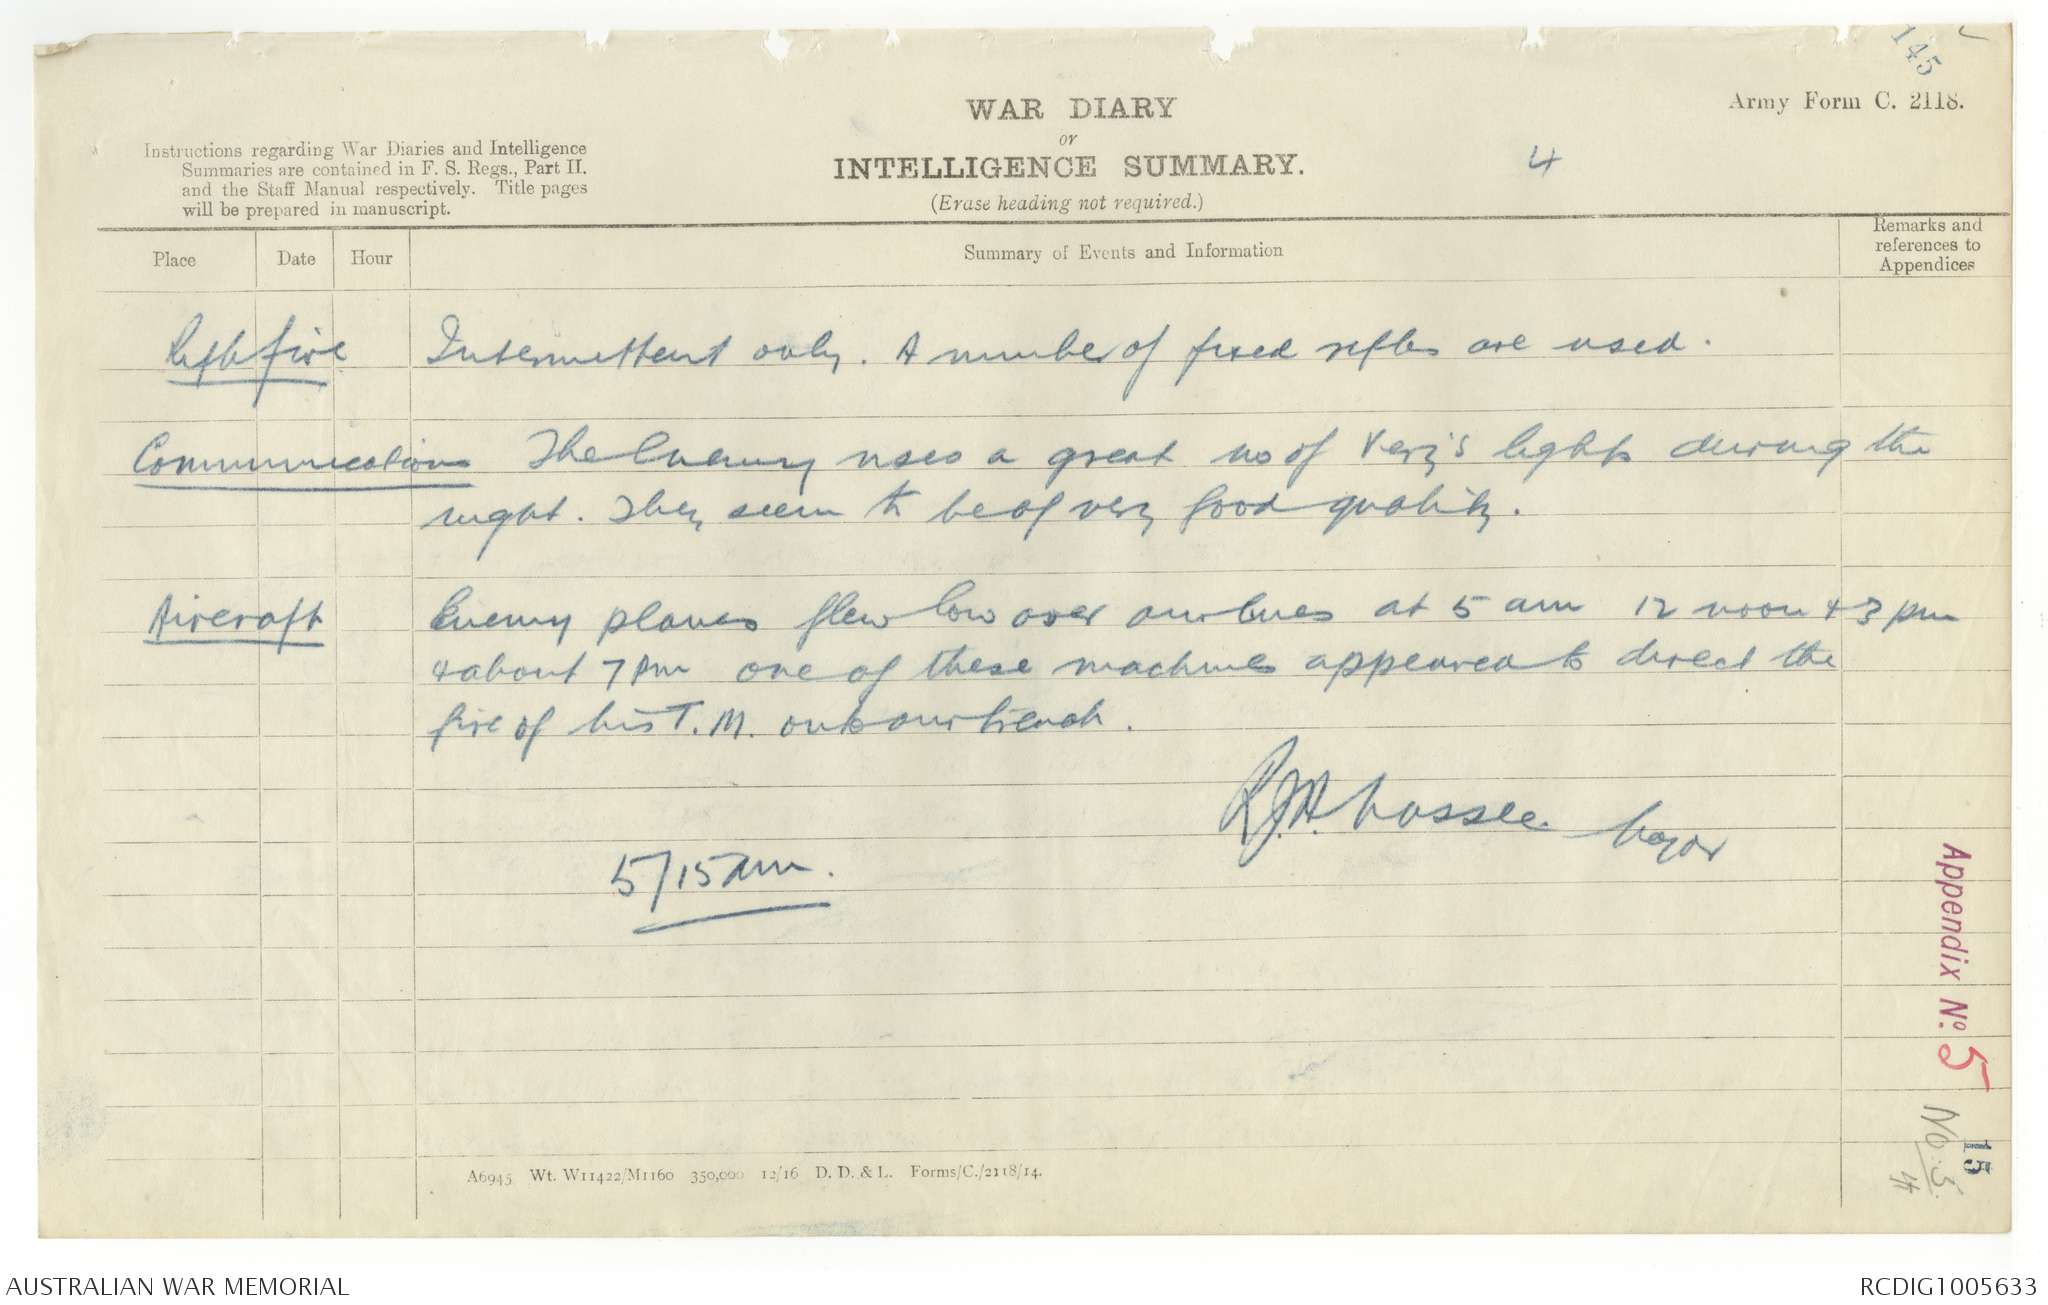 145
Army Form C. 2118.
WAR DIARY
or
INTELLIGENCE SUMMARY.
(Erase heading not required.)
4
Instructions regarding War Diaries and Intelligence
Summaries are contained in F. S. Regs., Part II.
and the Staff Manual respectively. Title pages
will be prepared in manuscript.
Place
Date
Hour
Summary of Events and Information
Remarks and
references to
Appendices
fire Intermittent only. A number of fixed rifles are used.
Communications The Enemy uses a great no of Very's lights during the
night. They seem to be of very good quality.
Aircraft Enemy planes flew low over our lines at 5 am 12 noon + 3 pm
+ about 7 pm one of these machines appeared to direct the
fire of his T. M. onto our trench.
Major
5/15 am.
Appendix No. 5
No. 5.
15
4
A6945 Wt. W11422/M1160 350,000 12/16 D. D. & L. Forms/C./2118/14.
AUSTRALIAN WAR MEMORIAL
RCDIG1005633